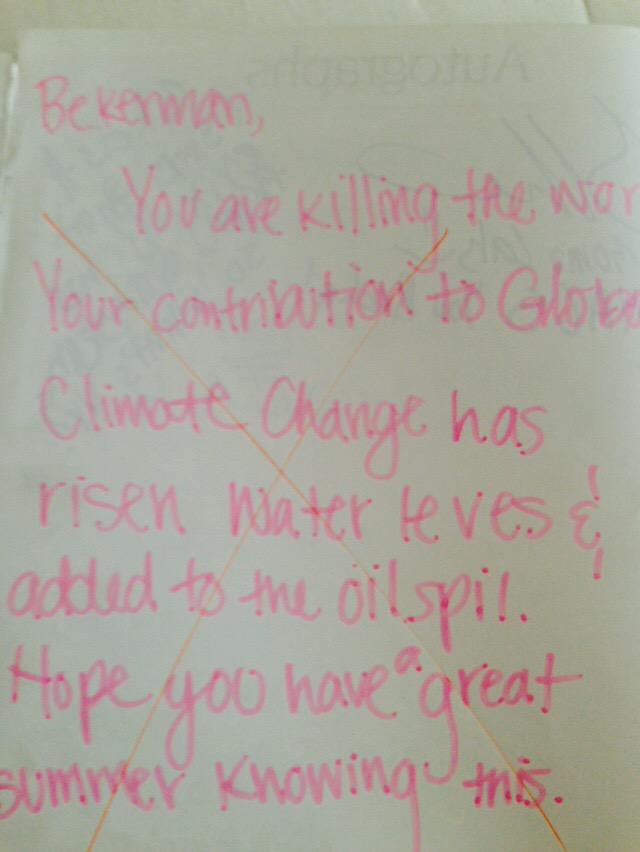 Autographs
Bekerman,
You are killing the wor
Your contribution to Globa
Climate Change has
risen water leves &
added to the oil spil.
Hope you have a great
summer knowing this.